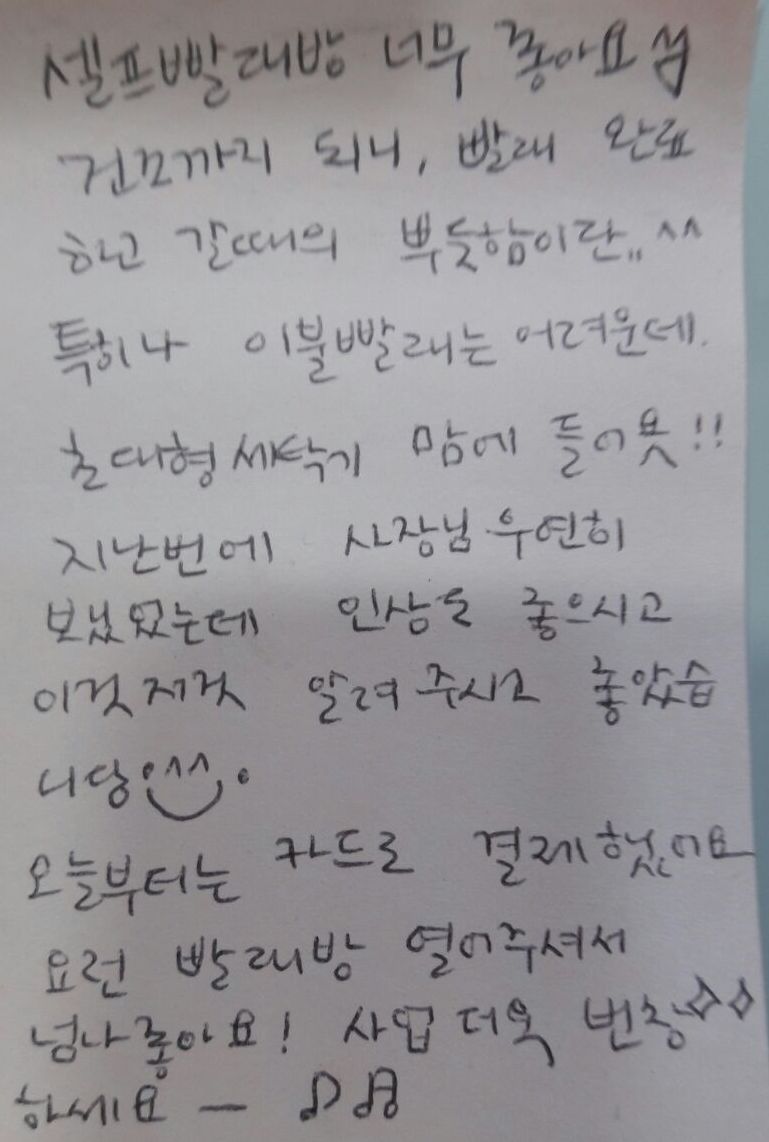 셀프빨래방 너무 좋아요
건조까지 되니, 빨래 완료
하고 갈때의 뿌듯함이란,, ^^
특히나 이불빨래는 어려운데.
초대형세탁기 맘에 들어욧!!
지난번에 사장님 우연히
보았었는데 인상도 좋으시고
이것저것 알려주시고 좋았습
니당 ^^.
오늘부터는 카드로 결제했어요
요런 빨래방 열어주셔서
넘나좋아요! 사업 더욱 번창
하세요 —